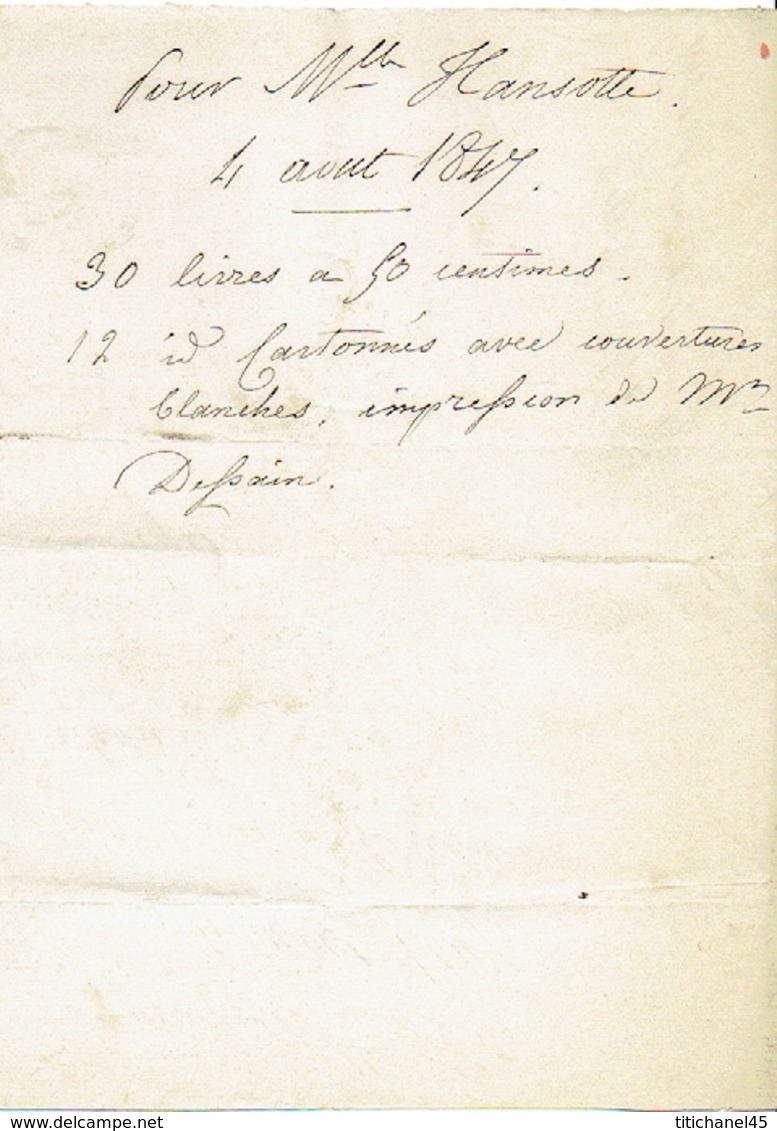 Pour Mlle Hansotte.
4 aout 1847.
30 livres a 50 centimes.
12 id Cartonnés avec couvertures
blanches, impression de Mr
Dessain.
delcampe.net
titichanel45